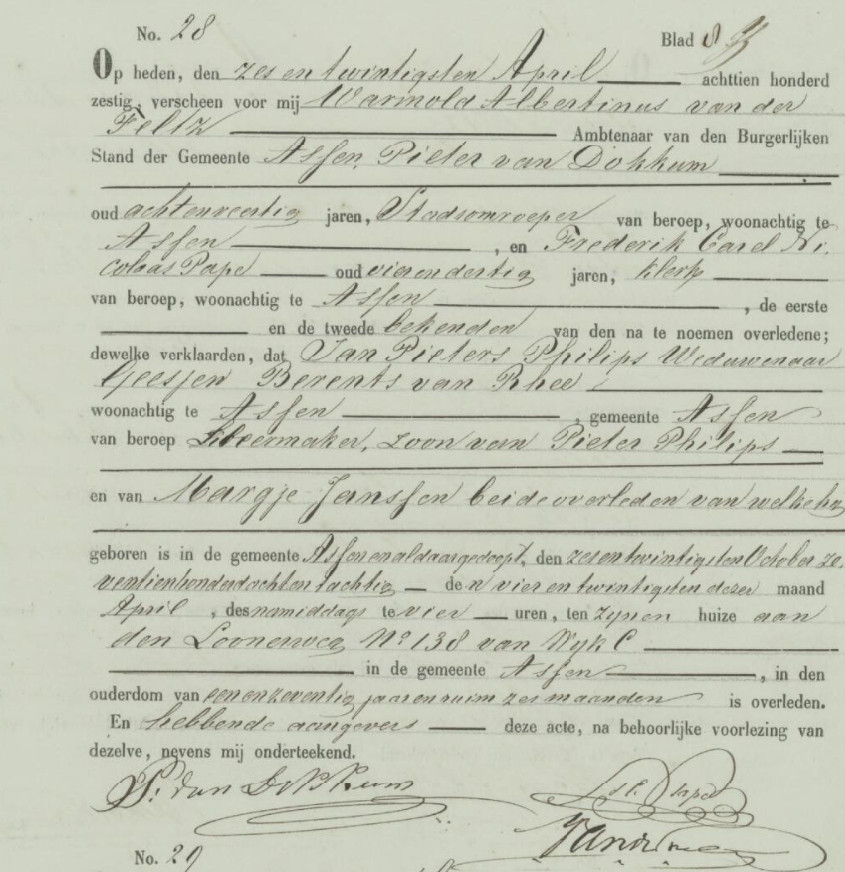 No. 28 Blad 8
Op heden, den zes en twintigsten April achttien honderd
zestig, verscheen voor mij Warmold Albertinus van der
Feltz Ambtenaar van den Burgerlijken
Stand der Gemeente Assen, Pieter van Dokkum
oud achtenveertig jaren, Stadsomroeper van beroep, woonachtig te
Assen, en Frederik Carel Ni,
colaas Pape oud vierendertig jaren, klerk
van beroep, woonachtig te Assen, de eerste
en de tweede bekenden van den na te noemen overledene;
dewelke verklaarden, dat Jan Pieters Philips Weduwenaar
Geesjen Berents van Rhee
woonachtig te Assen, gemeente Assen
van beroep Kleermaker, zoon van Pieter Philips
en van Margje Janssen beide overleden van welke hy
geboren is in de gemeente Assen en aldaar gedoopt, den zes en twintigsten October ze,
ventienhonderd acht en tachtig den vier en twintigsten dezer maand
April, des namiddags te vier uren, ten zynen huize aan
den Loonerweg No 138 van Wyk C
in de gemeente Assen, in den
ouderdom van een en zeventig jaar en ruim zes maanden is overleden.
En hebbende aangevers deze acte, na behoorlijke voorlezing van
dezelve, nevens mij onderteekend.
P. van Dokkum Pape
No. 29